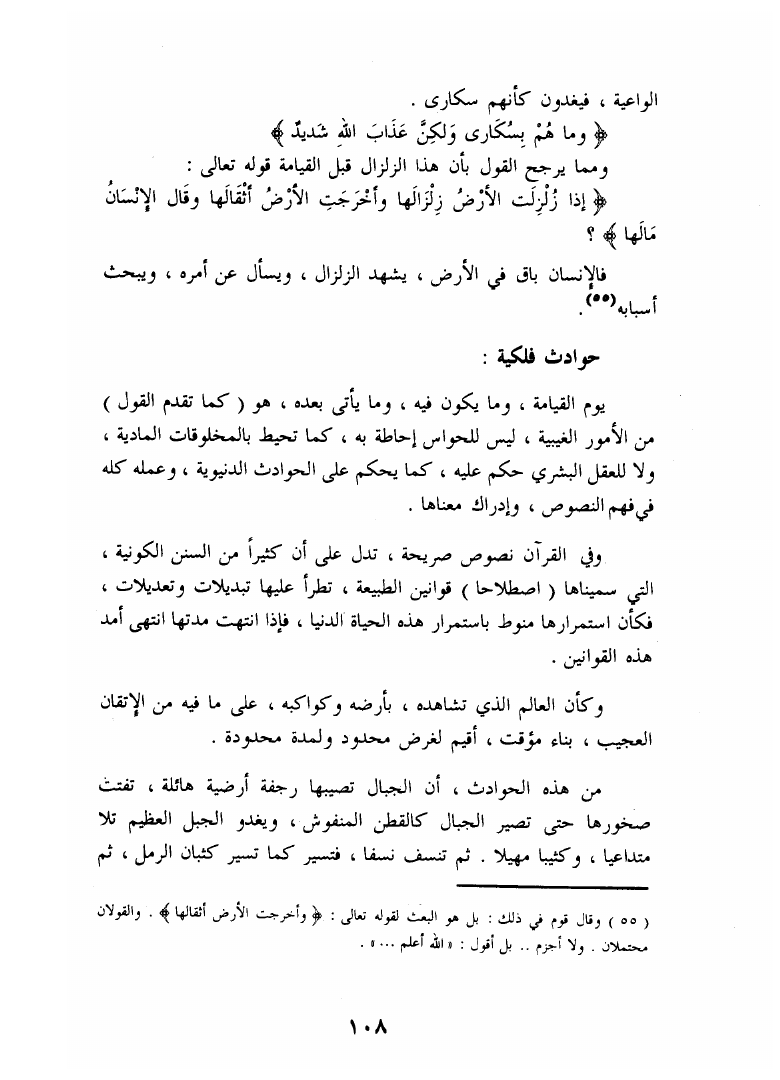 الواعية ، فيغدون كأنهم سكارى .
﴿ وما هُمْ بِسُكَارى وَلكِنَّ عَذَابَ اللهِ شَديدٌ ﴾
ومما يرجح القول بأن هذا الزلزال قبل القيامة قوله تعالى :
﴿ إذا زُلْزِلَت الأرْضُ زِلْزَالَها وأخْرَجَتِ الأرْضُ أثْقَالَها وقَال الإنْسَانُ
مَالَها ﴾ ؟
فالإنسان باق في الأرض ، يشهد الزلزال ، ويسأل عن أمره ، ويبحث
أسبابه(٥٥) .
حوادث فلكية :
يوم القيامة ، وما يكون فيه ، وما يأتى بعده ، هو ( كما تقدم القول )
من الأمور الغيبية ، ليس للحواس إحاطة به ، كما تحيط بالمخلوقات المادية ،
ولا للعقل البشري حكم عليه ، كما يحكم على الحوادث الدنيوية ، وعمله كله
في فهم النصوص ، وإدراك معناها .
وفي القرآن نصوص صريحة ، تدل على أن كثيراً من السنن الكونية ،
التي سميناها ( اصطلاحا ) قوانين الطبيعة ، تطرأ عليها تبديلات وتعديلات ،
فكأن استمرارها منوط باستمرار هذه الحياة الدنيا ، فإذا انتهت مدتها انتهى أمد
هذه القوانين .
وكأن العالم الذي تشاهده ، بأرضه وكواكبه ، على ما فيه من الإتقان
العجيب ، بناء مؤقت ، أقيم لغرض محدود ولمدة محدودة .
من هذه الحوادث ، أن الجبال تصيبها رجفة أرضية هائلة ، تفتت
صخورها حتى تصير الجبال كالقطن المنفوش ، ويغدو الجبل العظيم تلا
متداعيا ، وكثيبا مهيلا . ثم تنسف نسفا ، فتسير كما تسير كثبان الرمل ، ثم
( ٥٥ ) وقال قوم في ذلك : بل هو البعث لقوله تعالى : ﴿ وأخرجت الأرض أثقالها ﴾ . والقولان
محتملان . ولا أجزم .. بل أقول : « الله أعلم ... » .
١٠٨